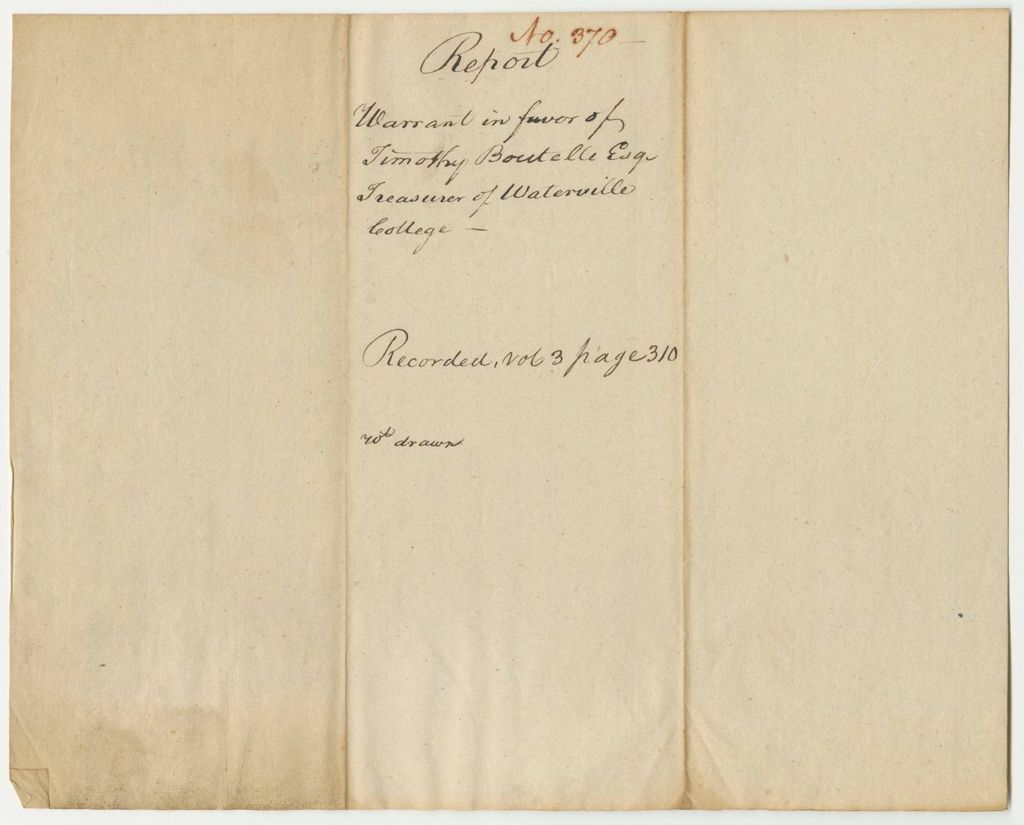 No. 370 —
Report
Warrant in favor of
Timothy Boutelle Esq.
Treasurer of Waterville
College —
Recorded, Vol 3 page 310
drawn